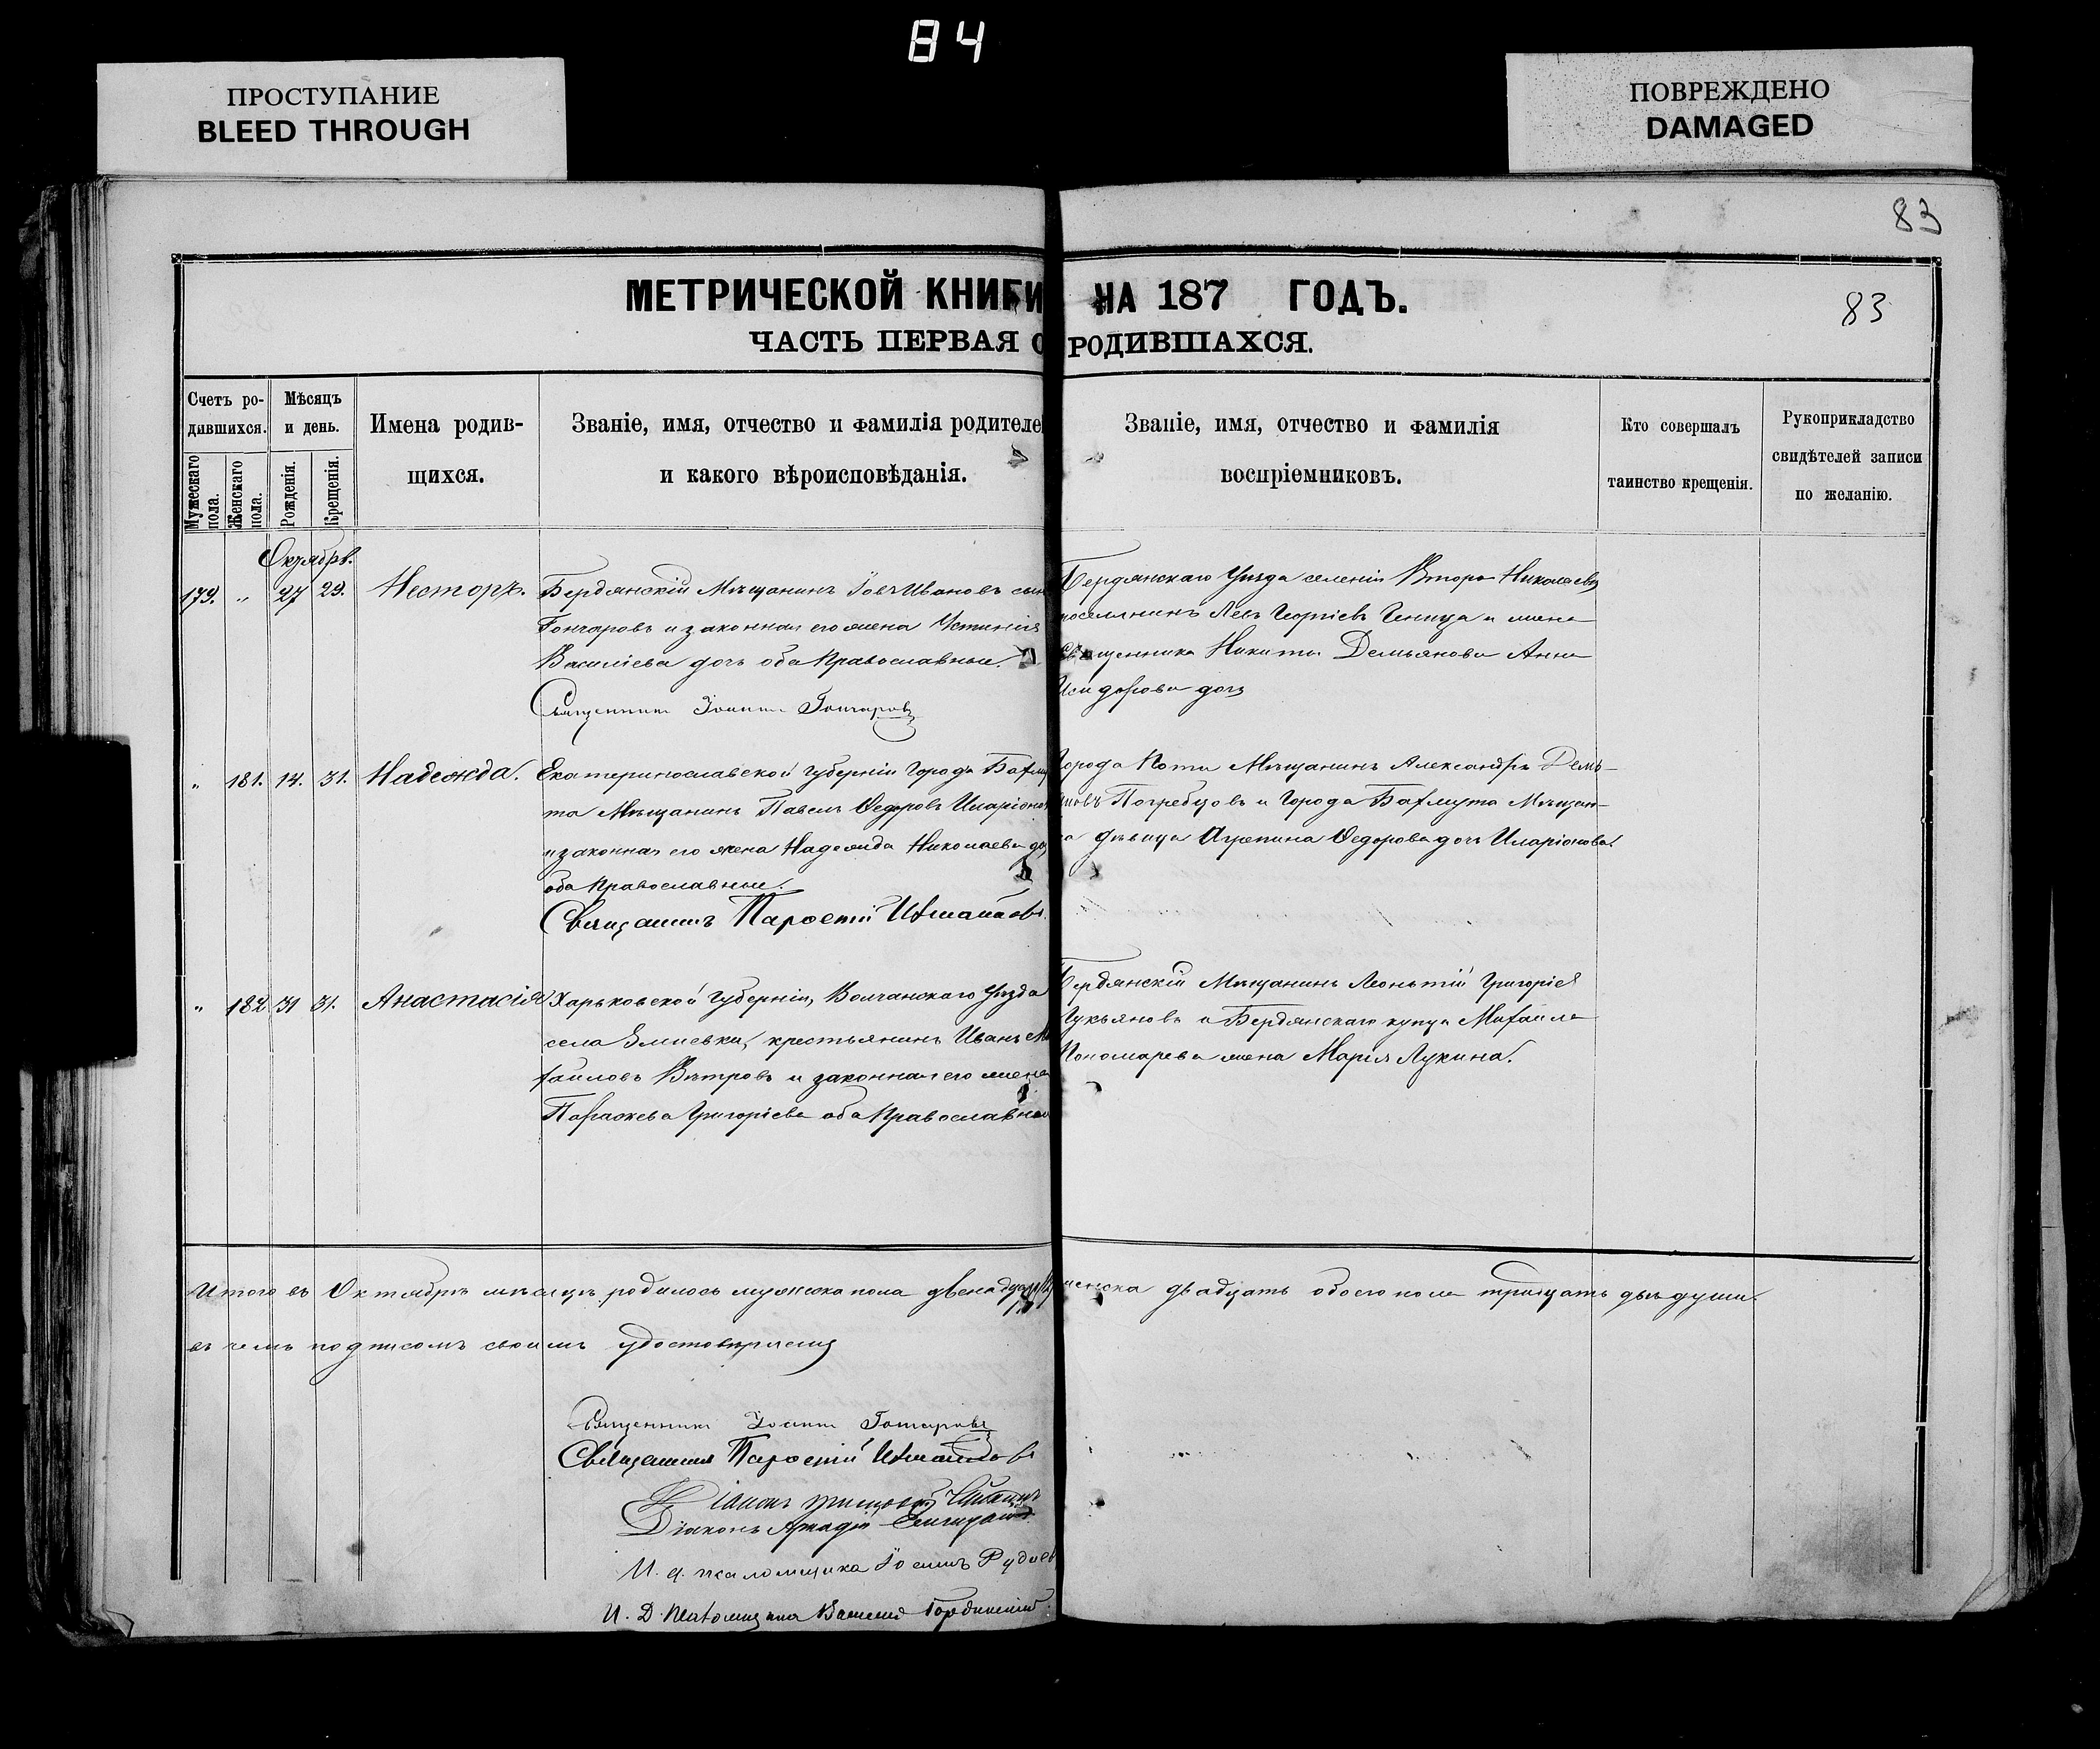 84
ПРОСТУПАНИЕ
BLEED THROUGH
ПОВРЕЖДЕНО
DAMAGED
83
МЕТРИЧЕСКОЙ КНИГИ НА 187 ГОДЪ.
83
ЧАСТЬ ПЕРВАЯ О РОДИВШАХСЯ.
Счетъ ро-
дившихся.
Мужескаго пола.
Женскаго пола.
Мѣсяцъ
и день.
Рожденія.
Крещенія.
Имена родив-
щихся.
Званіе, имя, отчество и фамилія родителе
и какого вѣроисповѣданія.
Званіе, имя, отчество и фамилія
воспріемниковъ.
Кто совершалъ
таинство крещенія.
Рукоприкладство
свидѣтелей записи
по желанію.
Октябрь.
179. " 27 29. Несторъ.
Бердянскій Мѣщанинъ Іовъ Ивановъ сын
Гончаровъ и законная его жена Устинія
Василіева дочь оба Православные.
Священникъ Іоаннъ Гончаровъ
Бердянскаго Уѣзда селенія Второ Николаевки
поселянинъ Левъ Георгіевъ и жена
Священника Никиты Демьянова Анна
Исидорова дочь
" 181. 14. 31. Надежда.
Екатеринославской Губерніи Города Бахму
та Мѣщанинъ Павелъ Ѳедоровъ Иларіоно
и законная его жена Надежда Николаева до
оба Православные.
Священникъ
Города Мѣщанинъ Александръ Демь-
яновъ Погребцовъ и Города Бахмута Мѣщан-
ка дѣвица Агрепина Ѳедорова дочь Иларіонова.
" 182. 31 31. Анастасія
Харьковской Губерніи, Волчанскаго Уѣзда
села Змиевки, крестьянинъ Иванъ Ми
хаиловъ Вѣтровъ и законная его жена
Параскева Григоріева оба Православные
Бердянскій Мѣщанинъ Леонтій Григоріев
Лукьяновъ и Бердянскаго купца Михаила
Пономарева жена Марія Лукина.
Итого въ Октябрѣ мѣсяцѣ родилось мужеска пола двенадцать женска двадцать обоего пола тридцать двѣ души.
въ чемъ подписомъ своимъ удостовѣряемъ
Священникъ Іоаннъ Гончаровъ
Священникъ
Діаконъ
Діаконъ Аркадій
И. д. псаломщика
И. Д. Псаломщика Василій